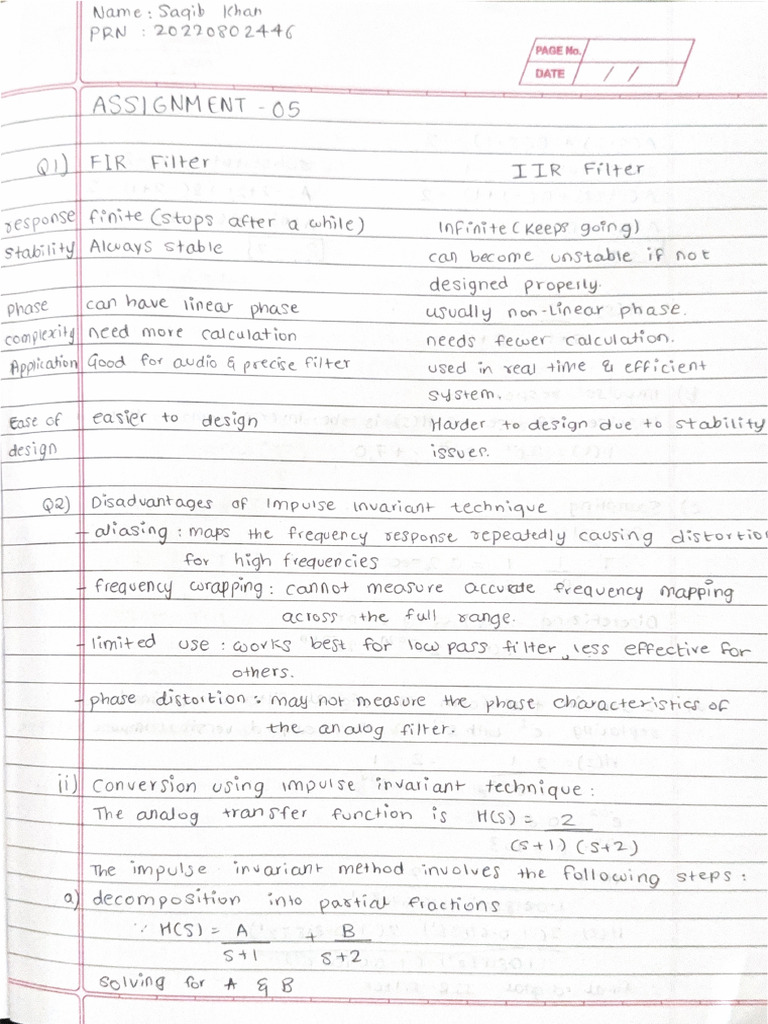 Name: Saqib Khan
PRN : 20220802446
PAGE No.
DATE / /
ASSIGNMENT - 05
Q1) FIR Filter IIR Filter
response finite (stops after a while) Infinite (keeps going)
stability Always stable can become unstable if not
designed properly.
Phase can have linear phase usually non-linear phase.
complexity need more calculation needs fewer calculation.
Application Good for audio & precise filter used in real time & efficient
system.
Ease of easier to design Harder to design due to stability
design issues.
Q2) Disadvantages of impulse invariant technique
- aliasing : maps the frequency response repeatedly causing distortion
for high frequencies
- frequency wrapping : cannot measure accurate frequency mapping
across the full range.
- limited use : works best for low pass filter, less effective for
others.
- phase distortion : may not measure the phase characteristics of
the analog filter.
ii) Conversion using impulse invariant technique :
The analog transfer function is H(S) = 2
(s+1) (s+2)
The impulse invariant method involves the following steps :
a) decomposition into partial fractions
∵ H(S) = A + B
S+1 S+2
Solving for A & B